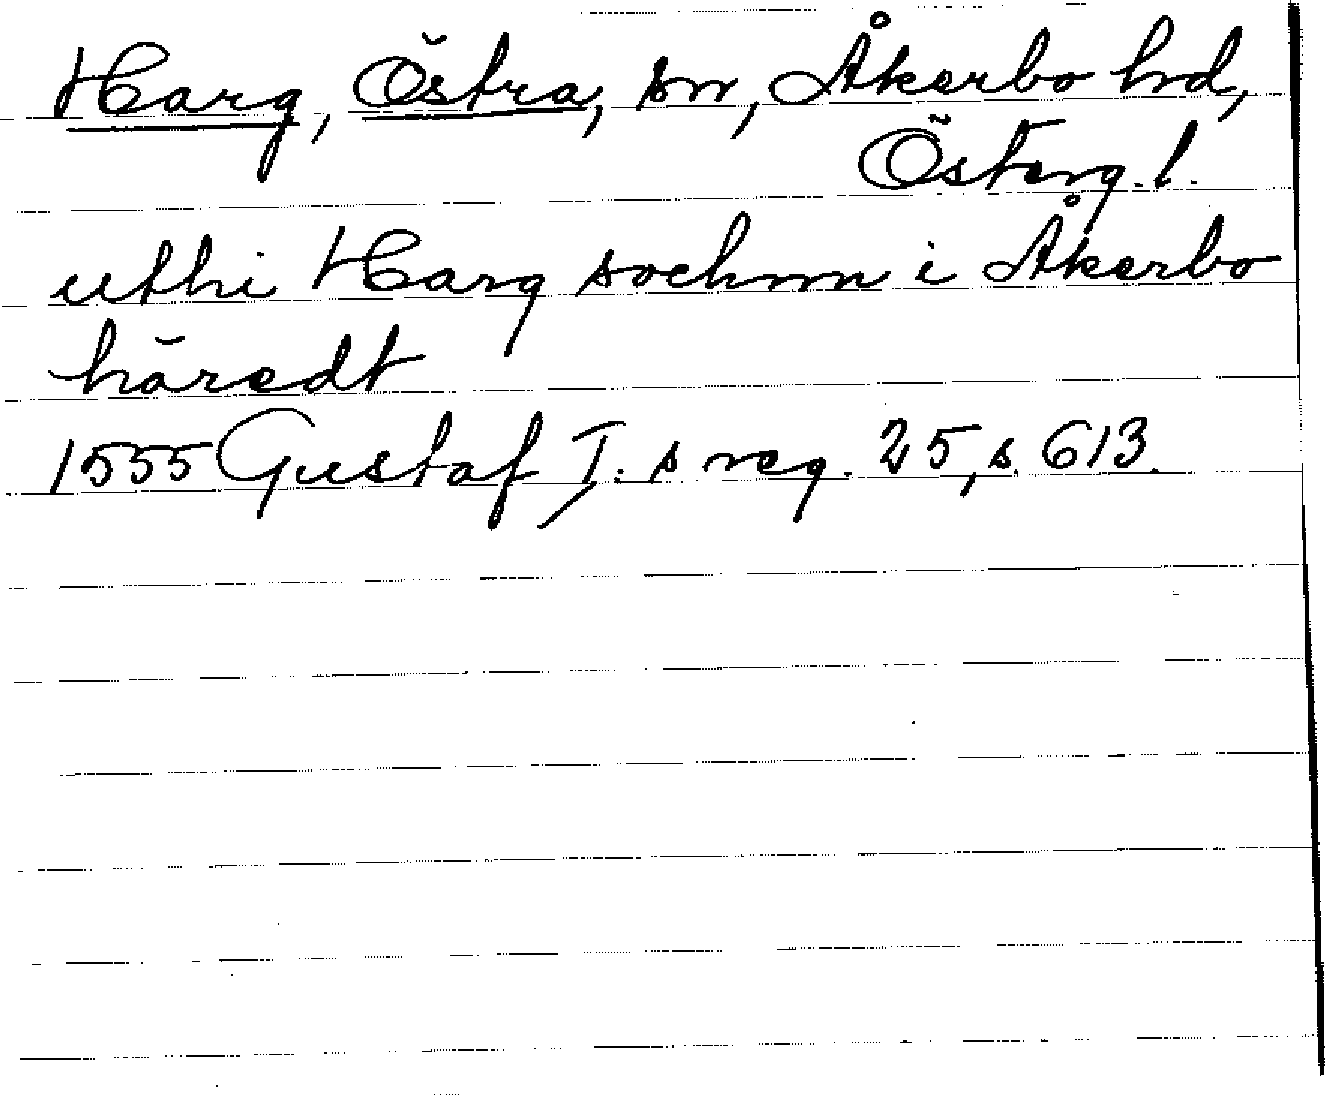 Harg, Östra, sn, Åkerbo hrd,
Österg. l.
uthi Harg sochnn i Åkerbo
häredt
1555 Gustaf I:s reg. 25, s. 613.